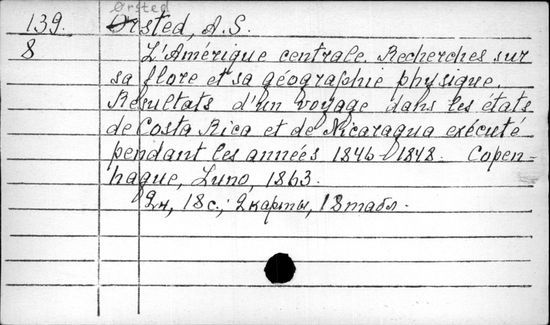 Ørsted
139. Ørsted, A.S.
8 L'Amérique centrale. Recherches sur
sa flore et sa géographie physique
Résultats d'un voyage dans les états
de Costa Rica et de Nicaragua exécuté
pendant les années 1846-1848. Copen=
hague, Luno, 1863.
2н, 18с.; 2карты, 18табл.